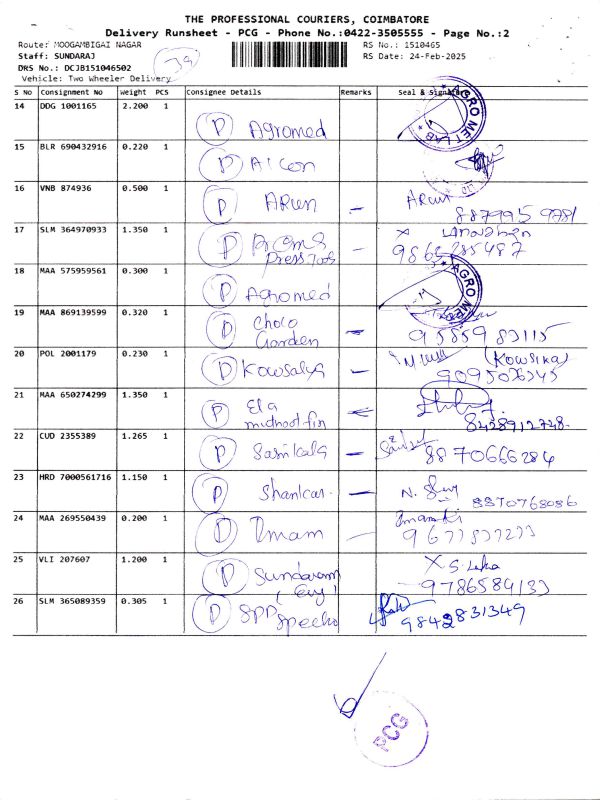 THE PROFESSIONAL COURIERS, COIMBATORE
Delivery Runsheet - PCG - Phone No.:0422-3505555 - Page No.:2
Route: MOOGAMBIGAI NAGAR RS No.: 1510465
Staff: SUNDARAJ RS Date: 24-Feb-2025
DRS No.: DCJB151046502
Vehicle: Two Wheeler Delivery
39
S No Consignment No Weight PCS Consignee Details Remarks Seal & Signature
14 DDG 1001165 2.200 1 P Agromed AGRO MET LAB
15 BLR 690432916 0.220 1 P Aicon
16 VNB 874936 0.500 1 P ARUN - ARUN
17 SLM 364970933 1.350 1 P ACMS Press Tools - X
9863285487
18 MAA 575959561 0.300 1 P Agromed AGRO
19 MAA 869139599 0.320 1 P Choco Garden -
9585983115
20 POL 2001179 0.230 1 P Kowsalya - (Kowsika)
21 MAA 650274299 1.350 1 P Ela
8428912748
22 CUD 2355389 1.265 1 P Sasikala -
8870666284
23 HRD 7000561716 1.150 1 P Shankar -
8870768086
24 MAA 269550439 0.200 1 P Imam -
25 VLI 207607 1.200 1 P Sundaram X S. Leka
26 SLM 365089359 0.305 1 P SPP
9842831349
PCG